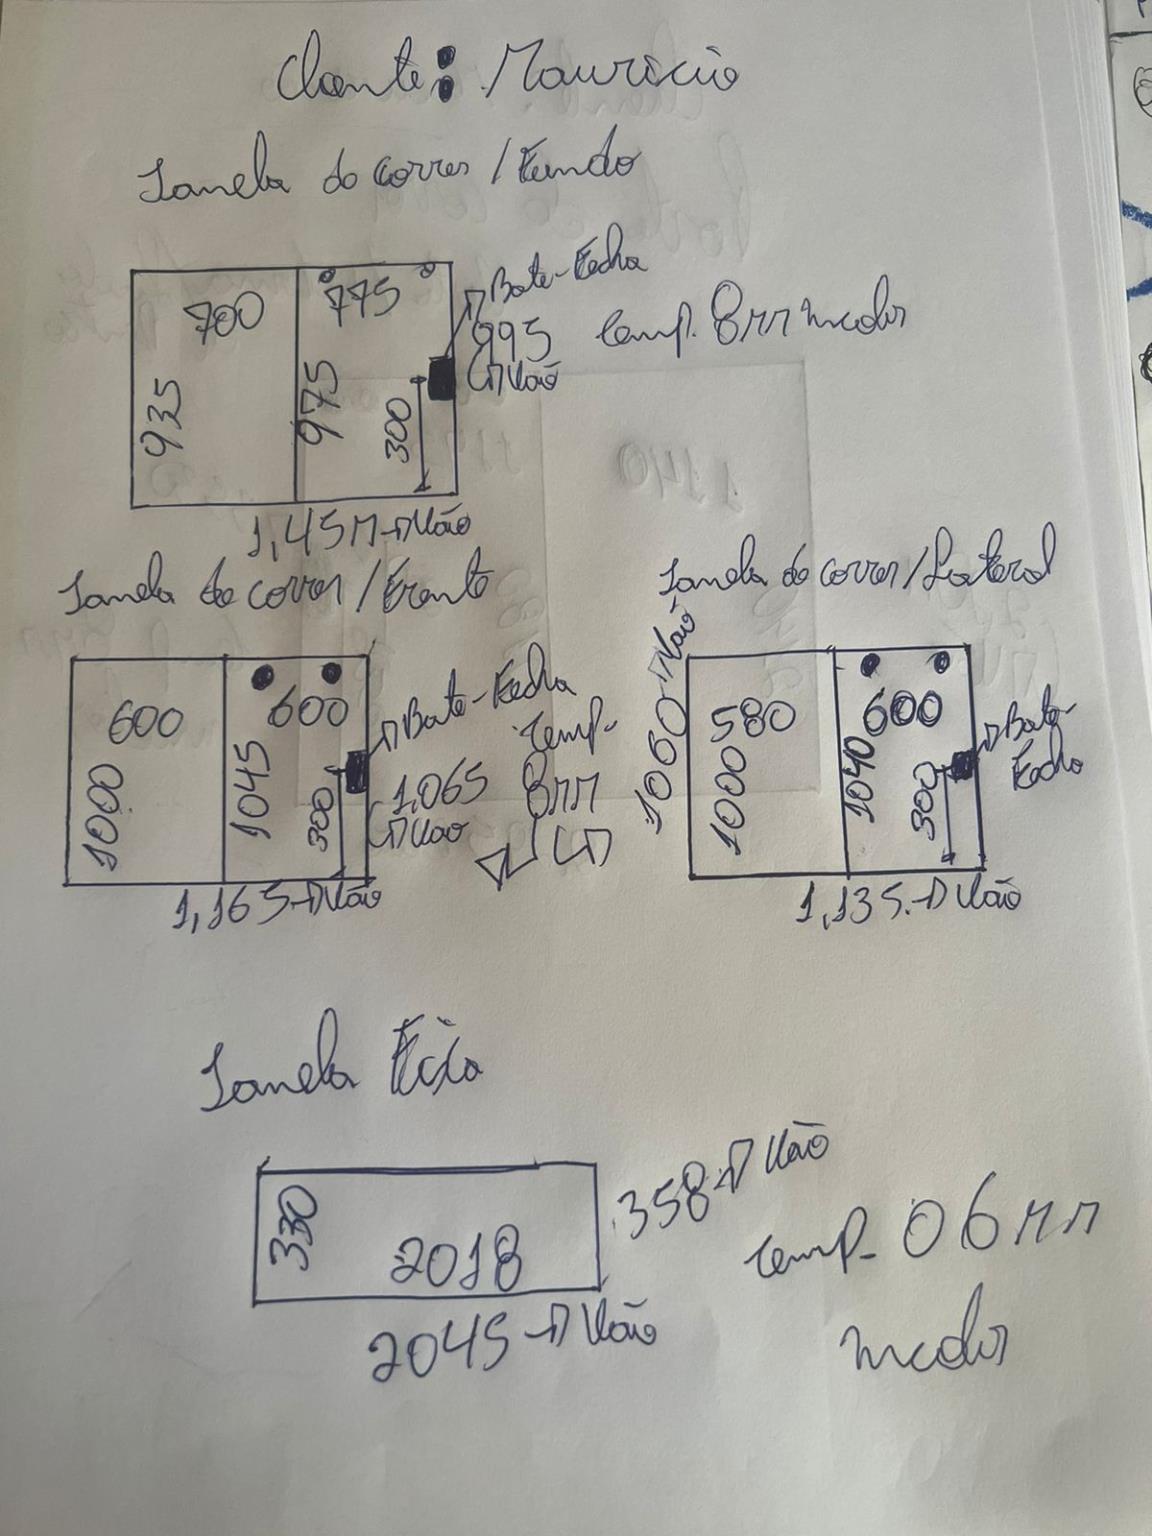 Cliente: Mauricio
Janela de correr / Fundo
Bate-Fecha
700
775
995
Temp. 8mm incolor
Vão
935
975
300
1,45m → Vão
Janela de correr / Frente
Janela de correr / Lateral
1060 → Vão
600
600
Bate-Fecha
Temp-
8mm
1000
1045
300
1,065
Vão
1,165 → Vão
580
600
Bate-
Fecha
1000
1040
300
1,135. → Vão
Janela Fixa
330
2018
358 → Vão
2045 → Vão
temp- 06mm
incolor